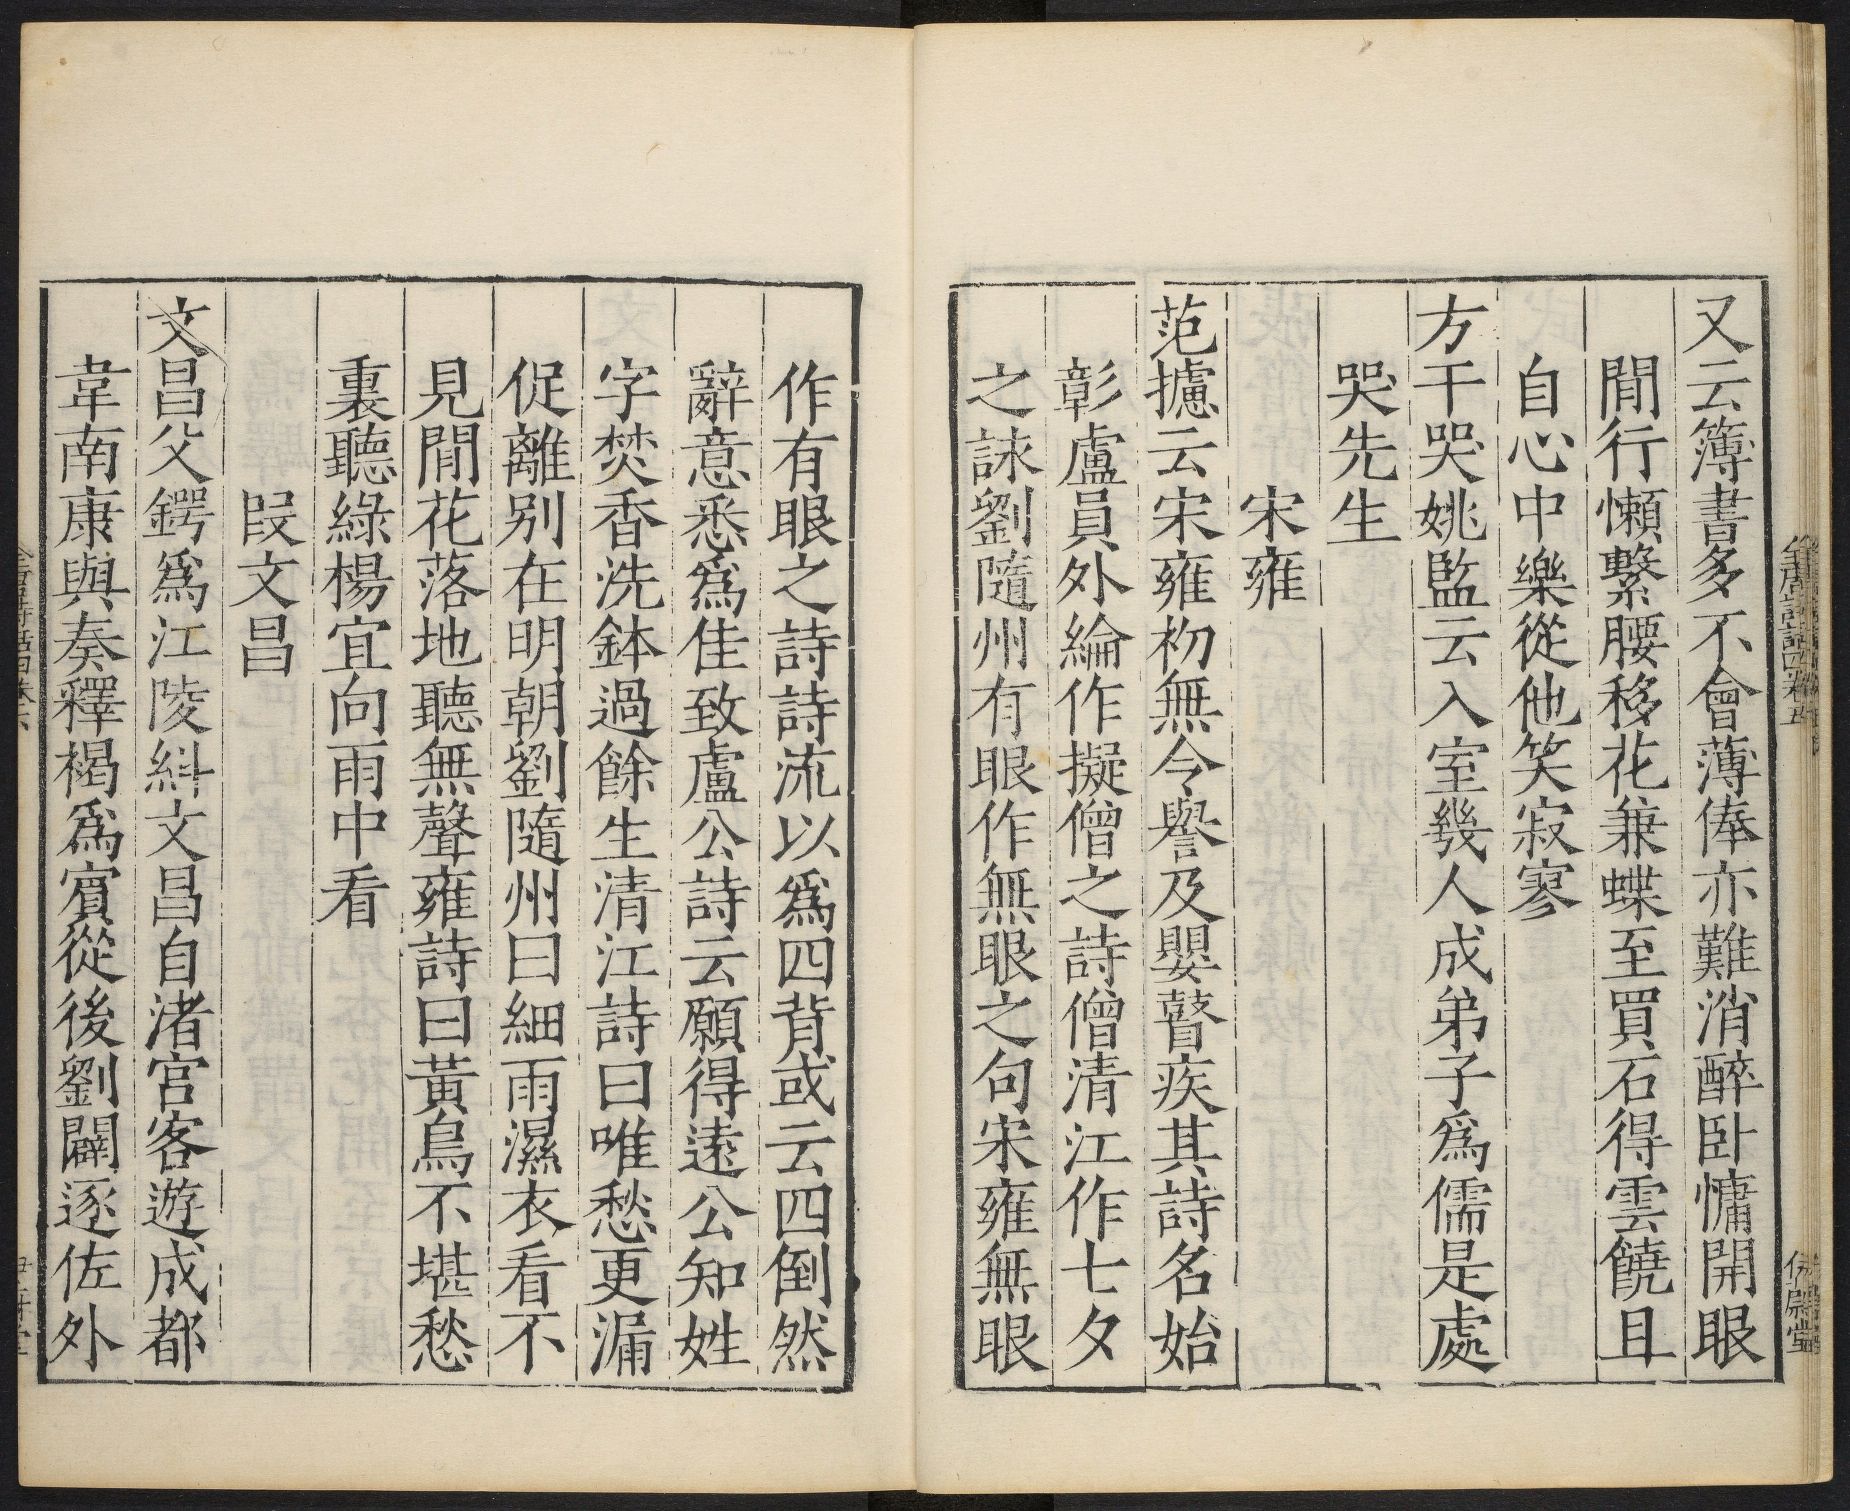 又云簿書多不會薄俸亦難消醉卧慵開眼
閒行懶繫腰移花兼蝶至買石得雲饒且
自心中樂從他笑寂寥
方干哭姚監云入室幾人成弟子為儒是處
哭先生
宋雍
范攄云宋雍初無令譽及嬰瞽疾其詩名始
彰盧員外綸作擬僧之詩僧清江作七夕
之誄劉隨州有眼作無眼之句宋雍無眼
作有眼之詩詩流以爲四背或云四倒然
辭意悉爲佳致盧公詩云願得遠公知姓
字焚香洗鉢過餘生清江詩曰唯愁更漏
促離別在明朝劉隨州曰細雨濕衣看不
見閒花落地聽無聲雍詩曰黃鳥不堪愁
裏聽綠楊宜向雨中看
段文昌
文昌父鍔爲江陵糾文昌自渚宮客遊成都
韋南康與奏釋褐爲賓從後劉闢逐佐外